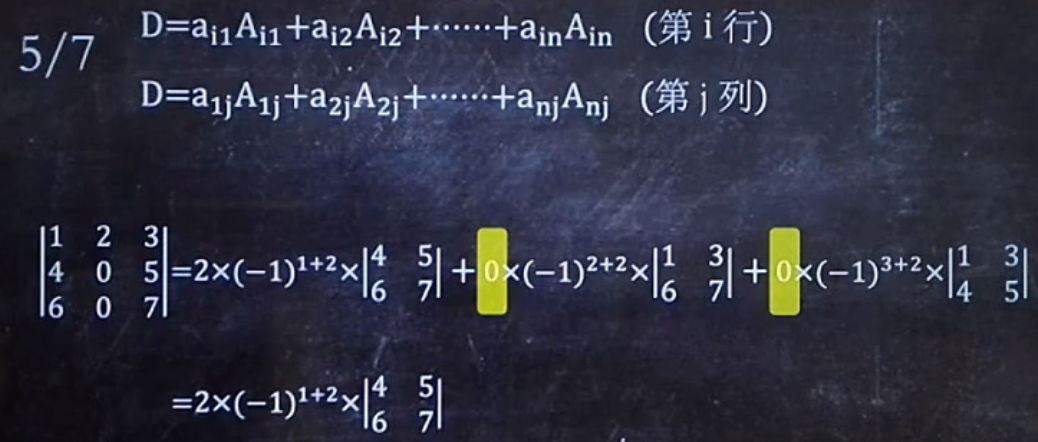 5/7
D=aᵢ₁Aᵢ₁+aᵢ₂Aᵢ₂+⋯⋯+aᵢₙAᵢₙ (第 i 行)
D=a₁ⱼA₁ⱼ+a₂ⱼA₂ⱼ+⋯⋯+aₙⱼAₙⱼ (第 j 列)
|1 2 3|
|4 0 5|=2×(−1)¹⁺²×|4 5; 6 7|+0×(−1)²⁺²×|1 3; 6 7|+0×(−1)³⁺²×|1 3; 4 5|
|6 0 7|
=2×(−1)¹⁺²×|4 5; 6 7|